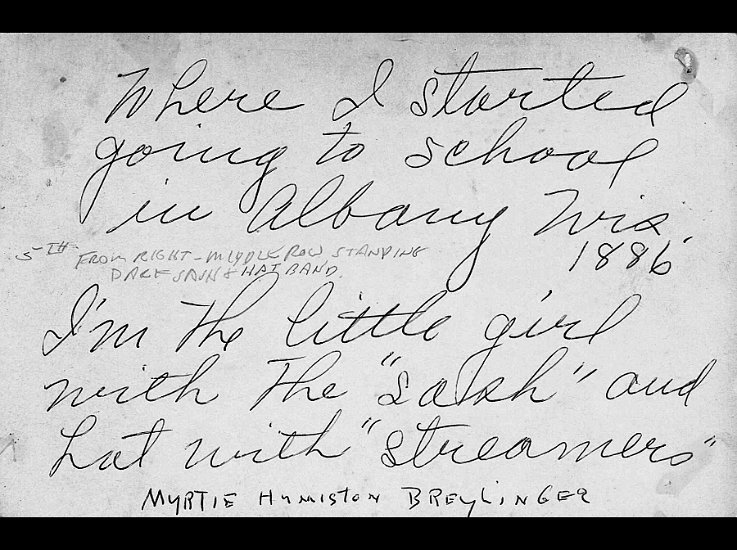 Where I started
going to school
in Albany Wis.
1886
5TH FROM RIGHT - MIDDLE ROW STANDING
DARK SASH & HAT BAND.
I'm the little girl
with the "sash" and
hat with "streamers"
MYRTIE HUMISTON BREYLINGER